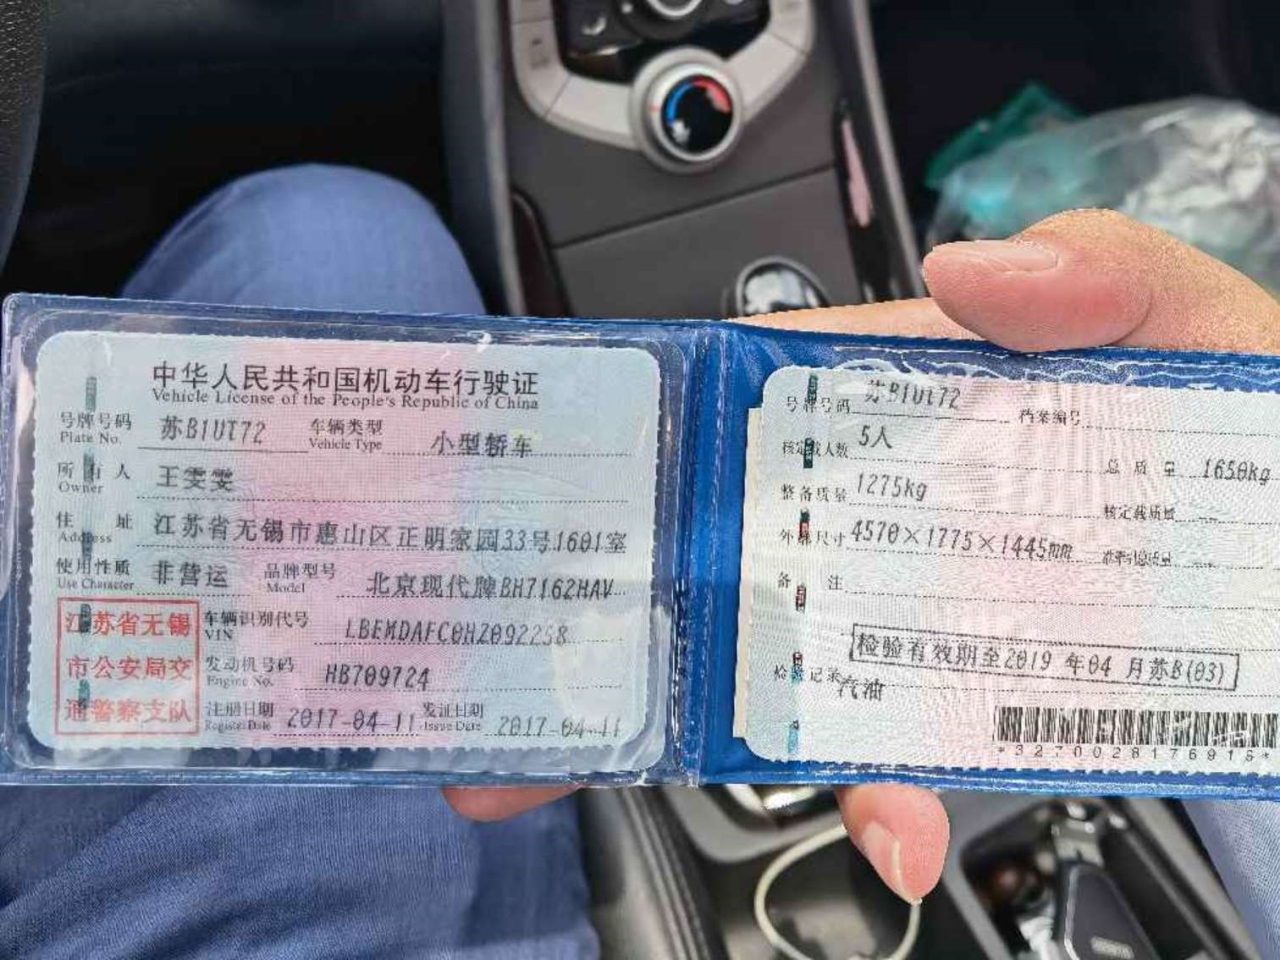 中华人民共和国机动车行驶证
Vehicle License of the People's Republic of China
号牌号码 苏B1UT72 车辆类型 小型轿车
Plate No. Vehicle Type
所有人 王雯雯
Owner
住址 江苏省无锡市惠山区正明家园33号1601室
Address
使用性质 非营运 品牌型号 北京现代牌BH7162HAV
Use Character Model
江苏省无锡
市公安局交
通警察支队
车辆识别代号 LBEMDAFC0HZ092258
VIN
发动机号码 HB709724
Engine No.
注册日期 2017-04-11 发证日期 2017-04-11
Register Date Issue Date
号牌号码 苏B1UT72 档案编号
核定载人数 5人 总质量 1650kg
整备质量 1275kg 核定载质量 --
外廓尺寸 4570×1775×1445mm 准牵引总质量 --
备注
检验有效期至2019年04月苏B(03)
检验记录 汽油
*3270028176915*